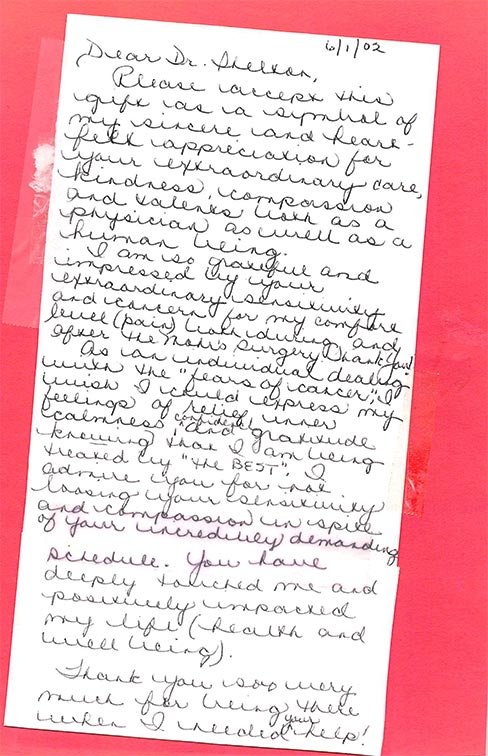 6/1/02
Dear Dr. Shelton,
Please accept this
gift as a symbol of
my sincere and heart-
felt appreciation for
your extraordinary care,
kindness, compassion
and talents both as a
physician as well as a
human being.
I am so grateful and
impressed by your
extraordinary sensitivity
and concern for my comfort
level (pain) both during and
after the Moh's surgery. Thank you!
As an individual dealing
with the "fears of cancer", I
wish I could express my
feelings of relief, inner
calmness, confidence and gratitude
knowing that I am being
treated by "the BEST". I
admire you for not
loosing your sensitivity
and compassion in spite
of your incredibly demanding
schedule. You have
deeply touched me and
positively impacted
my life (health and
well being).
Thank you soo very
much for being there
when I needed your help!